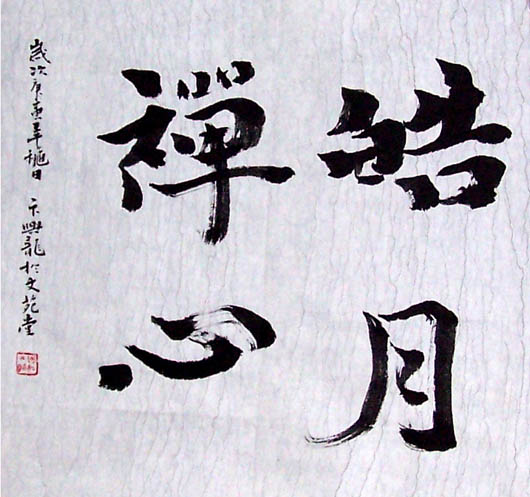 皓月
禪心
歲次庚寅年穐日 卞興龍於文苑堂